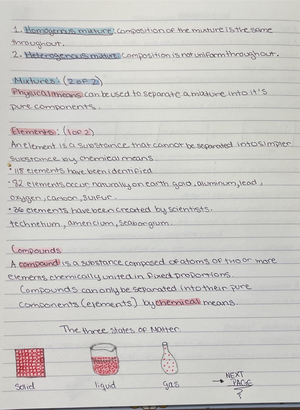 1. Homogenous mixture: composition of the mixture is the same
throughout.
2. Heterogenous mixture: Composition is not uniform throughout.
Mixtures: (2 of 2)
Physical means can be used to separate a mixture into it's
pure components.
Elements: (1 of 2)
An element is a substance that cannot be separated into simpler
substance by chemical means.
• 118 elements have been identified
• 82 elements occur naturally on earth gold, aluminum, lead,
oxygen, carbon, sulfur.
• 36 elements have been created by scientists.
technetium, americium, seaborgium.
Compounds
A compound is a substance composed of atoms of two or more
elements chemically united in fixed proportions.
Compounds can only be separated into their pure
components (elements) by chemical means.
The three states of Matter
solid liquid gas → NEXT
PAGE